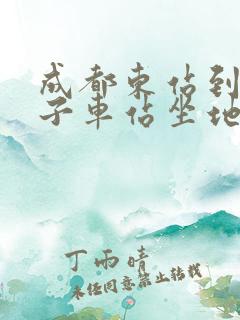 成都東佔到
子車佔坐地
丁雨晴
未经同意禁止转载